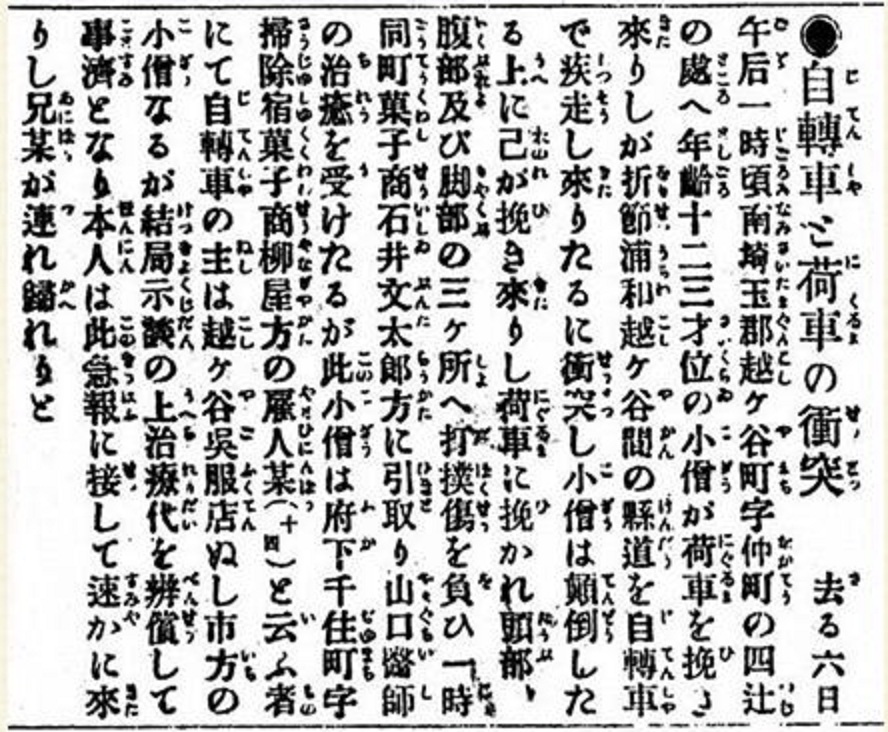 ●自轉車と荷車の衝突　去る六日
午后一時頃南埼玉郡越ヶ谷町字仲町の四辻
の處へ年齡十二三才位の小僧が荷車を挽き
來りしが折節浦和越ヶ谷間の縣道を自轉車
で疾走し來りたるに衝突し小僧は顚倒した
る上に己が挽き來りし荷車に挽かれ頭部、
腹部及び脚部の三ヶ所へ打撲傷を負ひ一時
同町菓子商石井文太郎方に引取り山口醫師
の治療を受けたるが此小僧は府下千住町字
掃除宿菓子商柳屋方の雇人某(十四)と云ふ者
にて自轉車の主は越ヶ谷吳服店ぬし市方の
小僧なるが結局示談の上治療代を辨償して
事濟となり本人は此急報に接して速かに來
りし兄某が連れ歸れりと